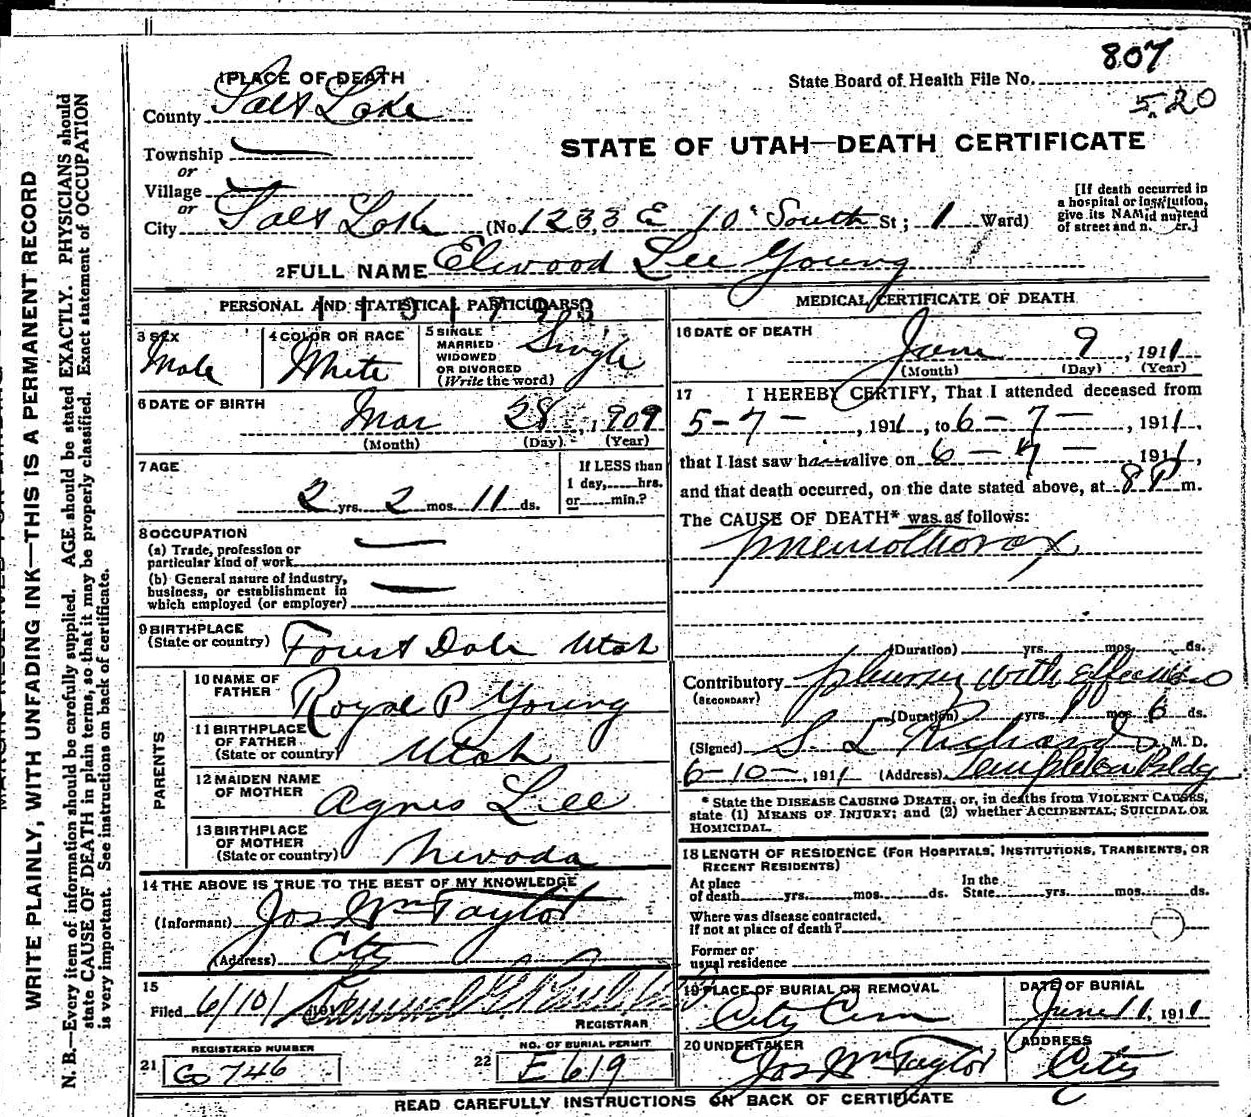 807
State Board of Health File No.
5.20
1 PLACE OF DEATH
County Salt Lake
STATE OF UTAH—DEATH CERTIFICATE
Township
or
Village
or
City Salt Lake (No. 1233 E 10' South St; 1 Ward)
[If death occurred in
a hospital or institution,
give its NAME instead
of street and number.]
2 FULL NAME Elwood Lee Young
PERSONAL AND STATISTICAL PARTICULARS
3 SEX
Male
4 COLOR OR RACE
White
5 SINGLE
MARRIED
WIDOWED
OR DIVORCED
(Write the word)
Single
6 DATE OF BIRTH
Mar 28, 1909
(Month) (Day) (Year)
7 AGE
2 yrs. 2 mos. 11 ds.
If LESS than
1 day, hrs.
or min.?
8 OCCUPATION
(a) Trade, profession or
particular kind of work
(b) General nature of industry,
business, or establishment in
which employed (or employer)
9 BIRTHPLACE
(State or country) Forest Dale Utah
PARENTS
10 NAME OF
FATHER Royal P Young
11 BIRTHPLACE
OF FATHER
(State or country) Utah
12 MAIDEN NAME
OF MOTHER Agnes Lee
13 BIRTHPLACE
OF MOTHER
(State or country) Nevada
14 THE ABOVE IS TRUE TO THE BEST OF MY KNOWLEDGE
(Informant) Jos Wm Taylor
(Address) City
15
Filed 6/10/ 191
REGISTRAR
21 REGISTERED NUMBER
G 746
22 NO. OF BURIAL PERMIT
E 619
MEDICAL CERTIFICATE OF DEATH
16 DATE OF DEATH
June 9, 1911
(Month) (Day) (Year)
17 I HEREBY CERTIFY, That I attended deceased from
5-7-, 1911, to 6-7-, 1911,
that I last saw h alive on 6-7-, 1911,
and that death occurred, on the date stated above, at 8 P m.
The CAUSE OF DEATH* was as follows:
pneumothorax
(Duration) yrs. mos. ds.
Contributory pleurisy with effusion
(SECONDARY)
(Duration) yrs. 1 mos. 6 ds.
(Signed) S. L Richards M. D.
6-10-, 1911 (Address) Templeton Bldg
* State the DISEASE CAUSING DEATH, or, in deaths from VIOLENT CAUSES,
state (1) MEANS OF INJURY; and (2) whether ACCIDENTAL, SUICIDAL OR
HOMICIDAL.
18 LENGTH OF RESIDENCE (FOR HOSPITALS, INSTITUTIONS, TRANSIENTS, OR
RECENT RESIDENTS)
At place
of death yrs. mos. ds.
In the
State yrs. mos. ds.
Where was disease contracted,
if not at place of death?
Former or
usual residence
19 PLACE OF BURIAL OR REMOVAL
City Cem
DATE OF BURIAL
June 11, 1911
20 UNDERTAKER
Jos Wm Taylor
ADDRESS
City
READ CAREFULLY INSTRUCTIONS ON BACK OF CERTIFICATE
WRITE PLAINLY, WITH UNFADING INK—THIS IS A PERMANENT RECORD
N. B.—Every item of information should be carefully supplied. AGE should be stated EXACTLY. PHYSICIANS should
state CAUSE OF DEATH in plain terms, so that it may be properly classified. Exact statement of OCCUPATION
is very important. See instructions on back of certificate.